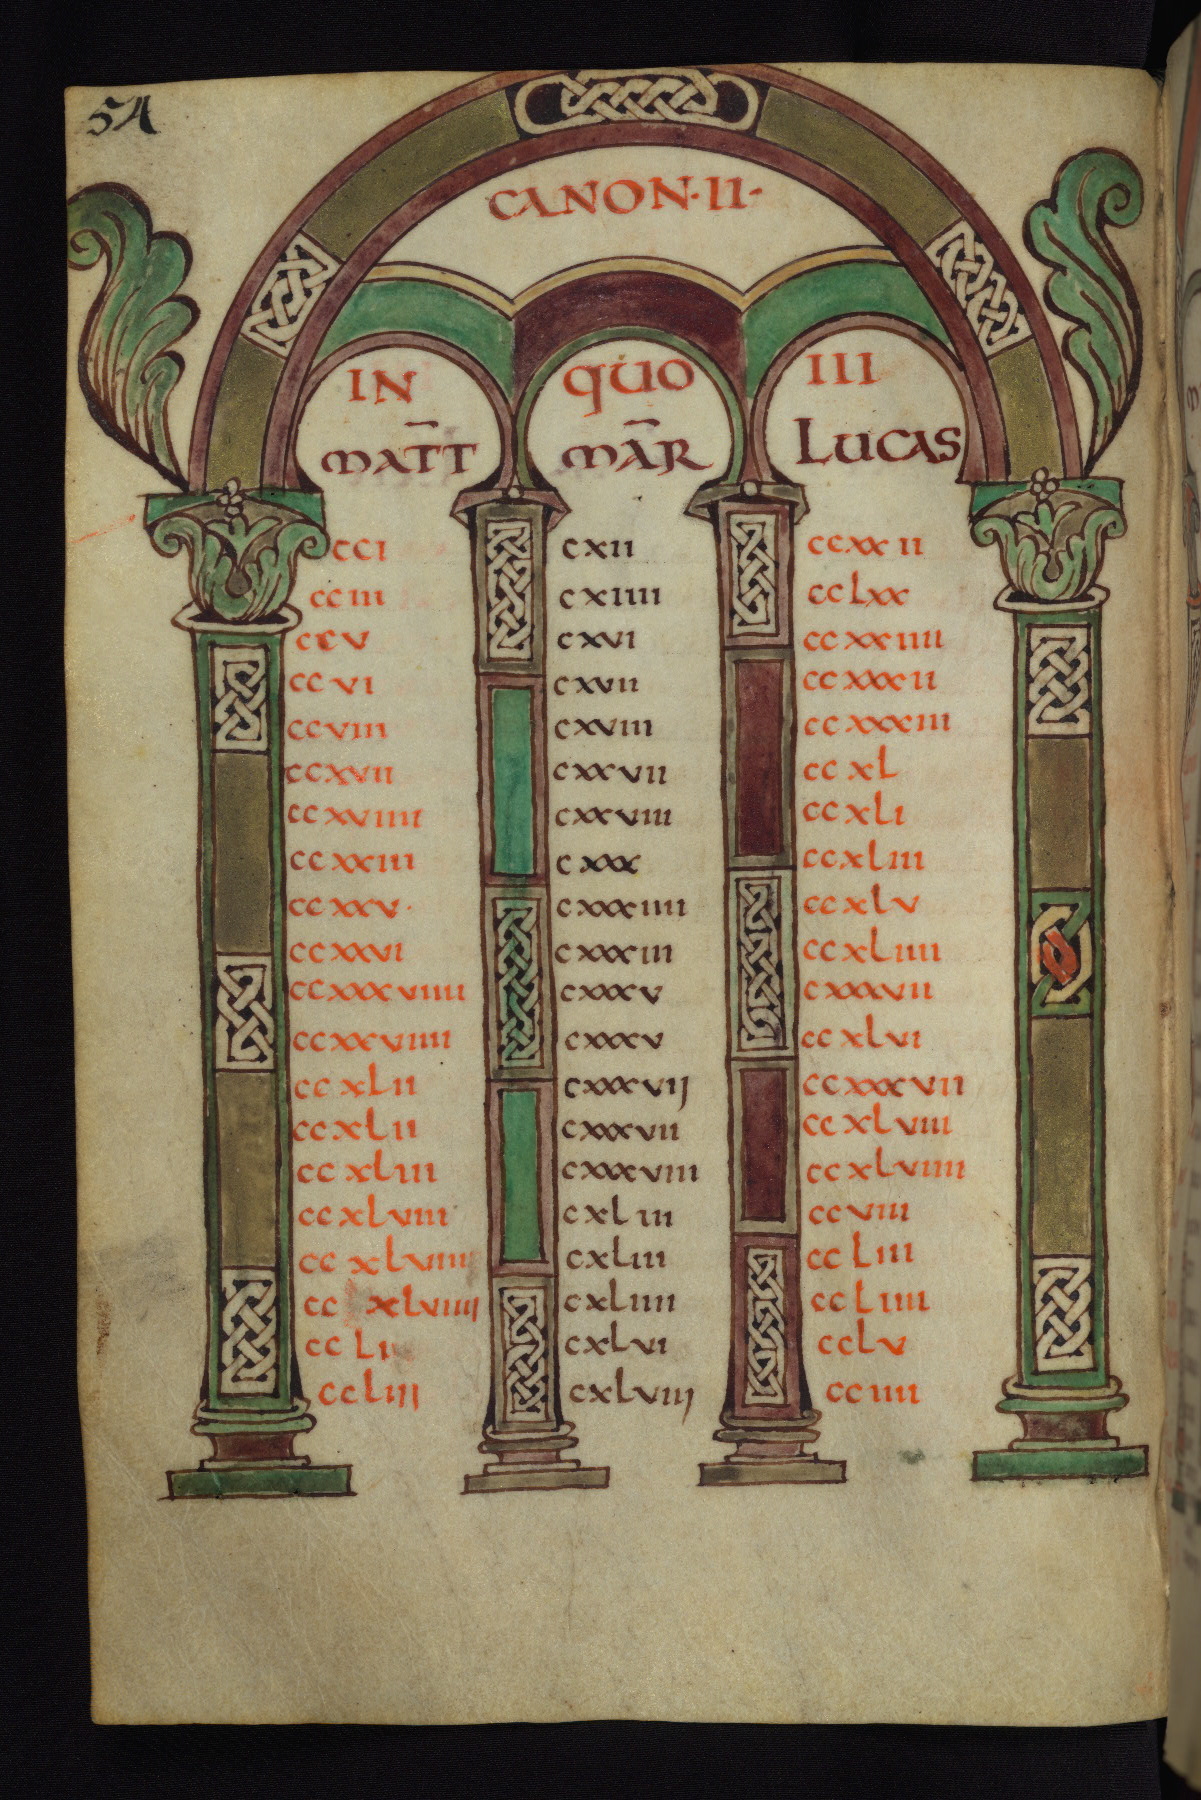 54
CANON·II·
IN QUO III
MATT MAR LUCAS
CCI CXII CCXXII
CCIII CXIIII CCLXX
CCV CXVI CCXXIIII
CCVI CXVII CCXXXII
CCVIII CXVIII CCXXXIII
CCXVII CXXVII CCXL
CCXVIIII CXXVIII CCXLI
CCXXIII CXXX CCXLIII
CCXXV· CXXXIIII CCXLV
CCXXVI CXXXIII CCXLIIII
CCXXXVIIII CXXXV CXXXVII
CCXXVIIII CXXXV CCXLVI
CCXLII CXXXVIJ CCXXXVII
CCXLII CXXXVII CCXLVIII
CCXLIII CXXXVIII CCXLVIIII
CCXLVIII CXLIII CCVIII
CCXLVIIII CXLIII CCLIII
CCXLVIIIJ CXLIIII CCLIIII
CCLI CXLVI CCLV
CCLIIJ CXLVIIJ CCIIII